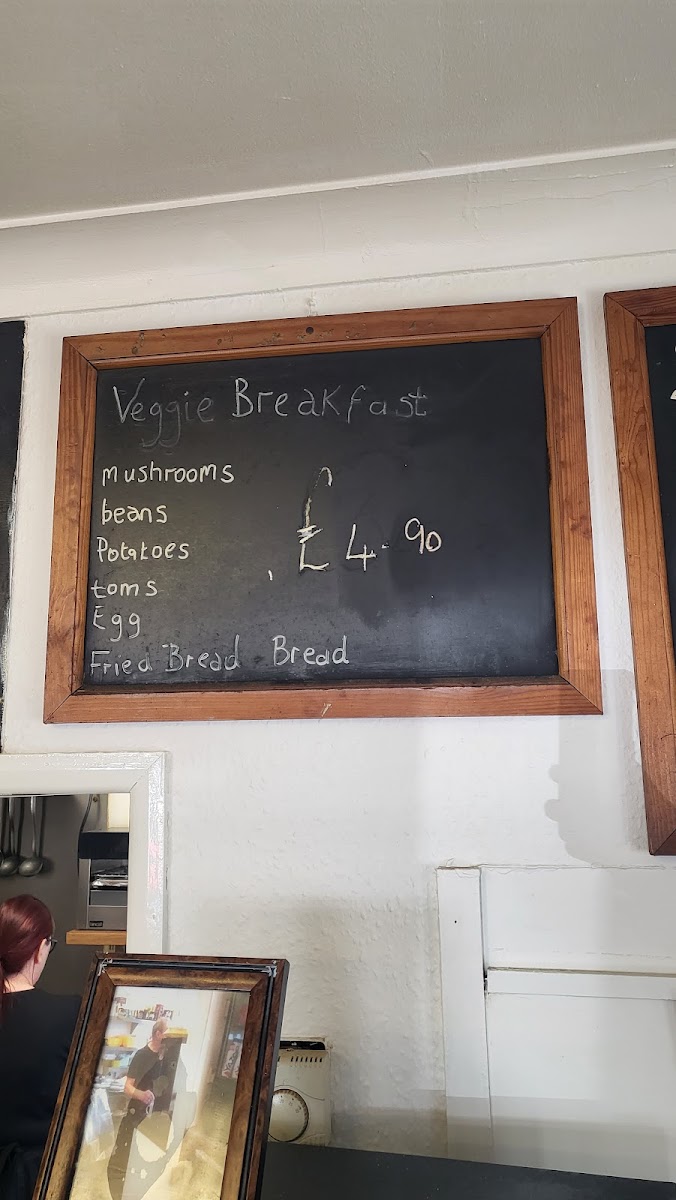 Veggie Breakfast
mushrooms
beans
£4-90
Potatoes
toms
Egg
Fried Bread Bread